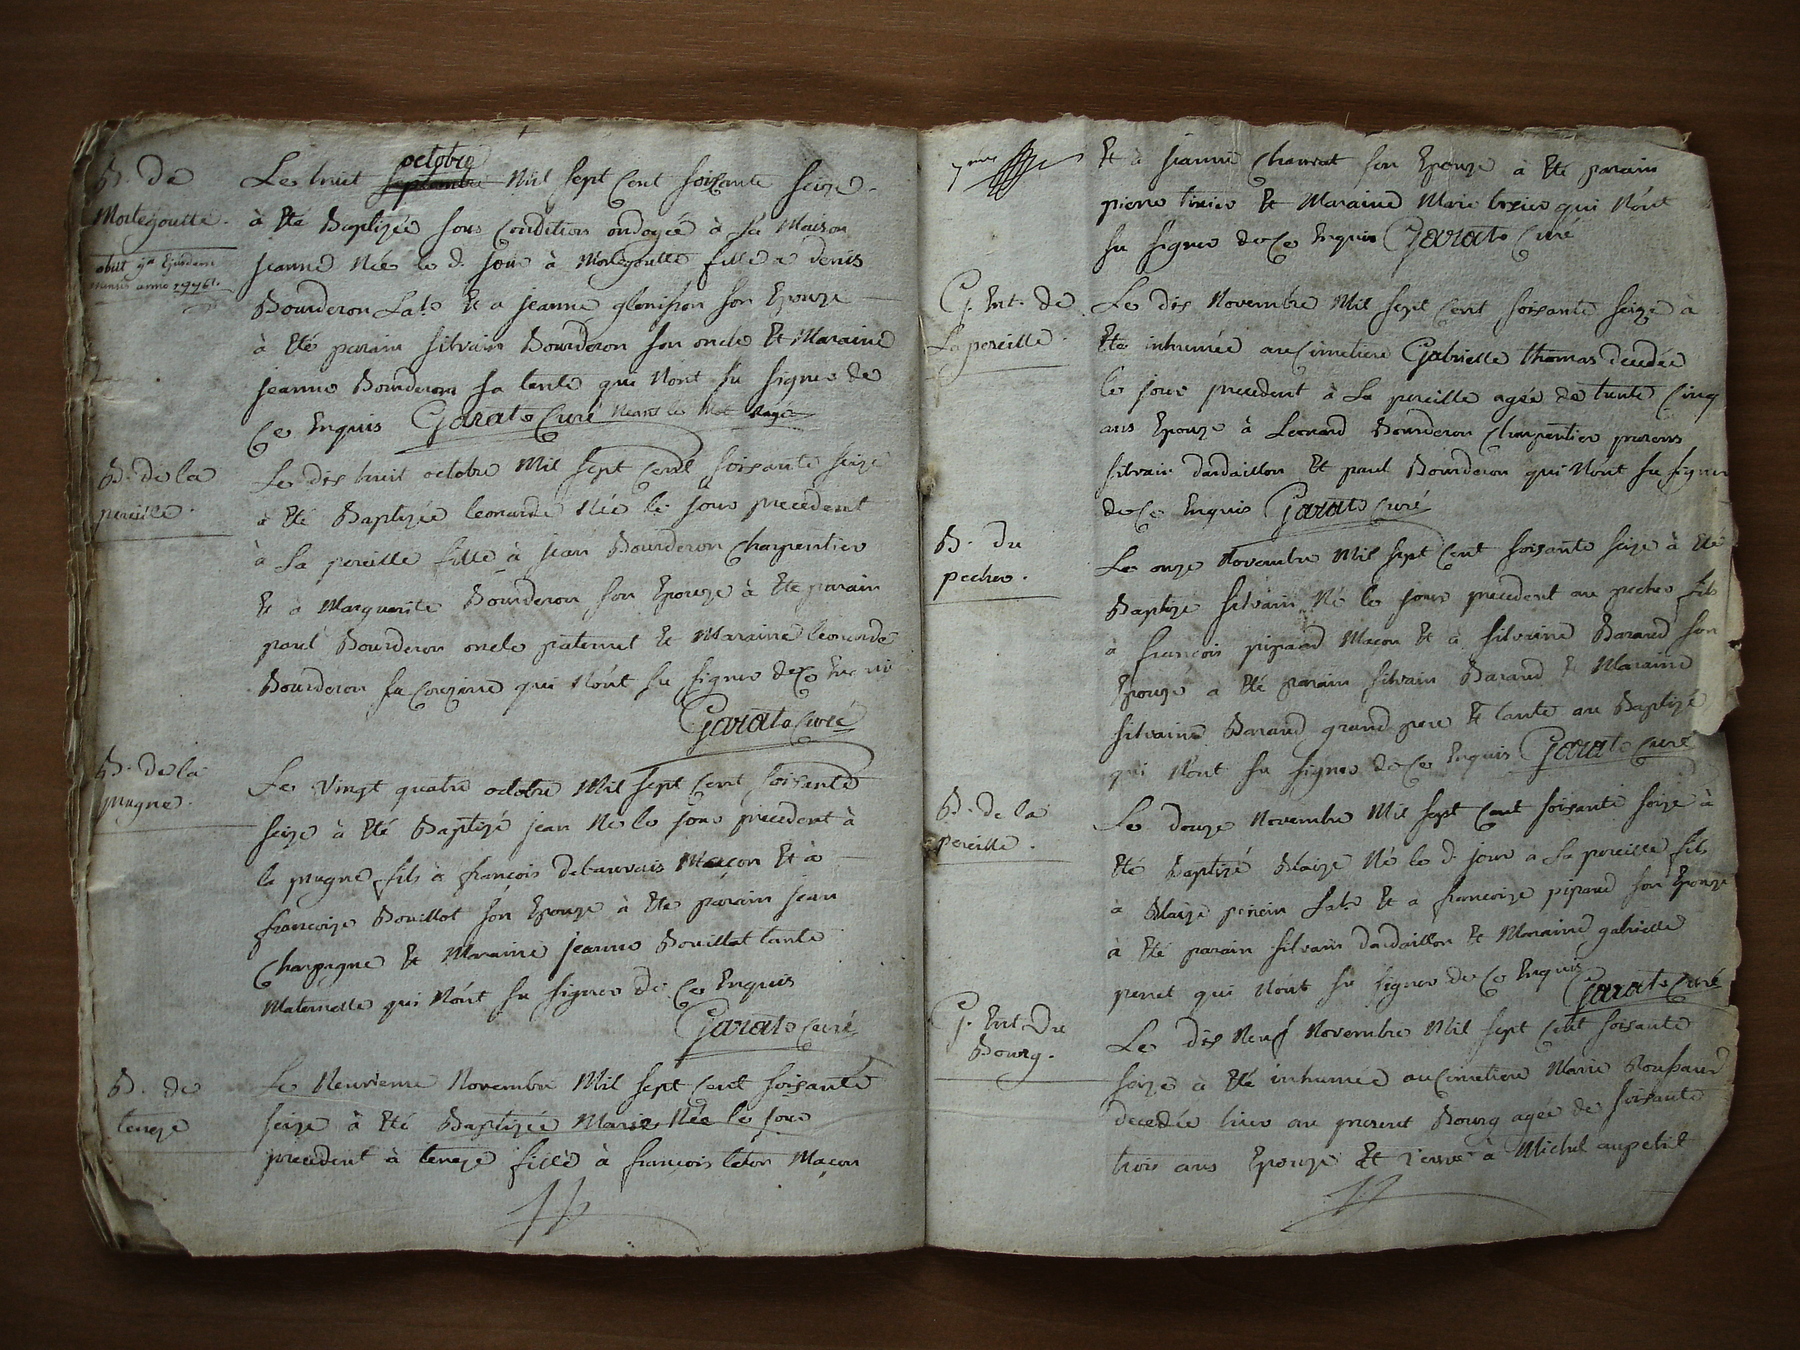 B. de
Mortegoutte.
obiit 9a Ejusdem
mensis anno 1776.
octobre
Le huit septembre Mil sept cent soixante seize
à Eté Baptizée sous Condition ondoyée à La Maison
jeanne Née le d. jour à Mortegoutte fille a denis
Bourderon Labr Et a jeanne glenisson son Epouze
à Eté parain silvain Bourderon son oncle Et Maraine
jeanne Bourderon sa tante qui Nont su signer de
Ce Enquis Garat Curé Neant le Mot Rayé
B. de la
pereille.
Le dix huit octobre Mil sept Cent soixante seize
à Eté Baptizée leonarde Née le jour precedent
à La pereille fille à jean Bourderon charpentier
Et à Marguerite Bourderon son Epouze à Eté parain
paul Bourderon oncle paternel Et Maraine leonarde
Bourderon sa Couzine qui Nont su signer de Ce Enquis
Garat Curé
B. de la
pugne.
Le vingt quatre octobre Mil sept Cent soixante
seize à Eté Baptizé jean Né le jour precedent à
la pugne fils à françois Debauvais Maçon Et à
françoize Bouillot son Epouze à Eté parain jean
Champagne Et Maraine jeanne Bouillot tante
Maternelle qui Nont su signer de Ce Enquis
Garat Curé
B. de
teneze
Le Neuvieme Novembre Mil sept Cent soixante
seize à Eté Baptizée Marie Née le jour
precedent à teneze fille à françois léton Maçon
7eme
Et à jeanne Chanrat son Epouze à Eté parain
pierre tixier Et Maraine Marie tixier qui Nont
su signer de Ce Enquis Garat Curé
G. Ent. de
La pereille.
Le dix Novembre Mil sept Cent soixante seize à
Eté inhumée au Cimetiere Gabrielle thomas decedée
le jour precedent à La pereille agée de trente Cinq
ans Epouze à Leonard Bourderon Charpentier presens
silvain dardaillon Et paul Bourderon qui Nont su signer
de Ce Enquis Garat Curé
B. du
pecher.
Le onze Novembre Mil sept Cent soixante seize à Eté
Baptizé silvain Né le jour precedent au pecher fils
à françois pipaud Maçon Et à silvaine Baraud son
Epouze a Eté parain silvain Baraud Et Maraine
silvaine Baraud grand pere Et tante au Baptizé
qui Nont su signer de Ce Enquis Garat Curé
B. de la
pereille.
Le douze Novembre Mil sept Cent soixante seize à
Eté Baptizé Blaize Né le d. jour à La pereille fils
à Blaize perein Labr Et a françoize pipaud son Epouze
à Eté parain silvain dardaillon Et Maraine gabrielle
perret qui Nont su signer de Ce Enquis Garat Curé
G. Ent. du
Bourg.
Le dix Neuf Novembre Mil sept Cent soixante
seize à Eté inhumée au Cimetiere Marie
decedée hier au present Bourg agée de soixante
trois ans Epouze Et veuve à Michel aupetit